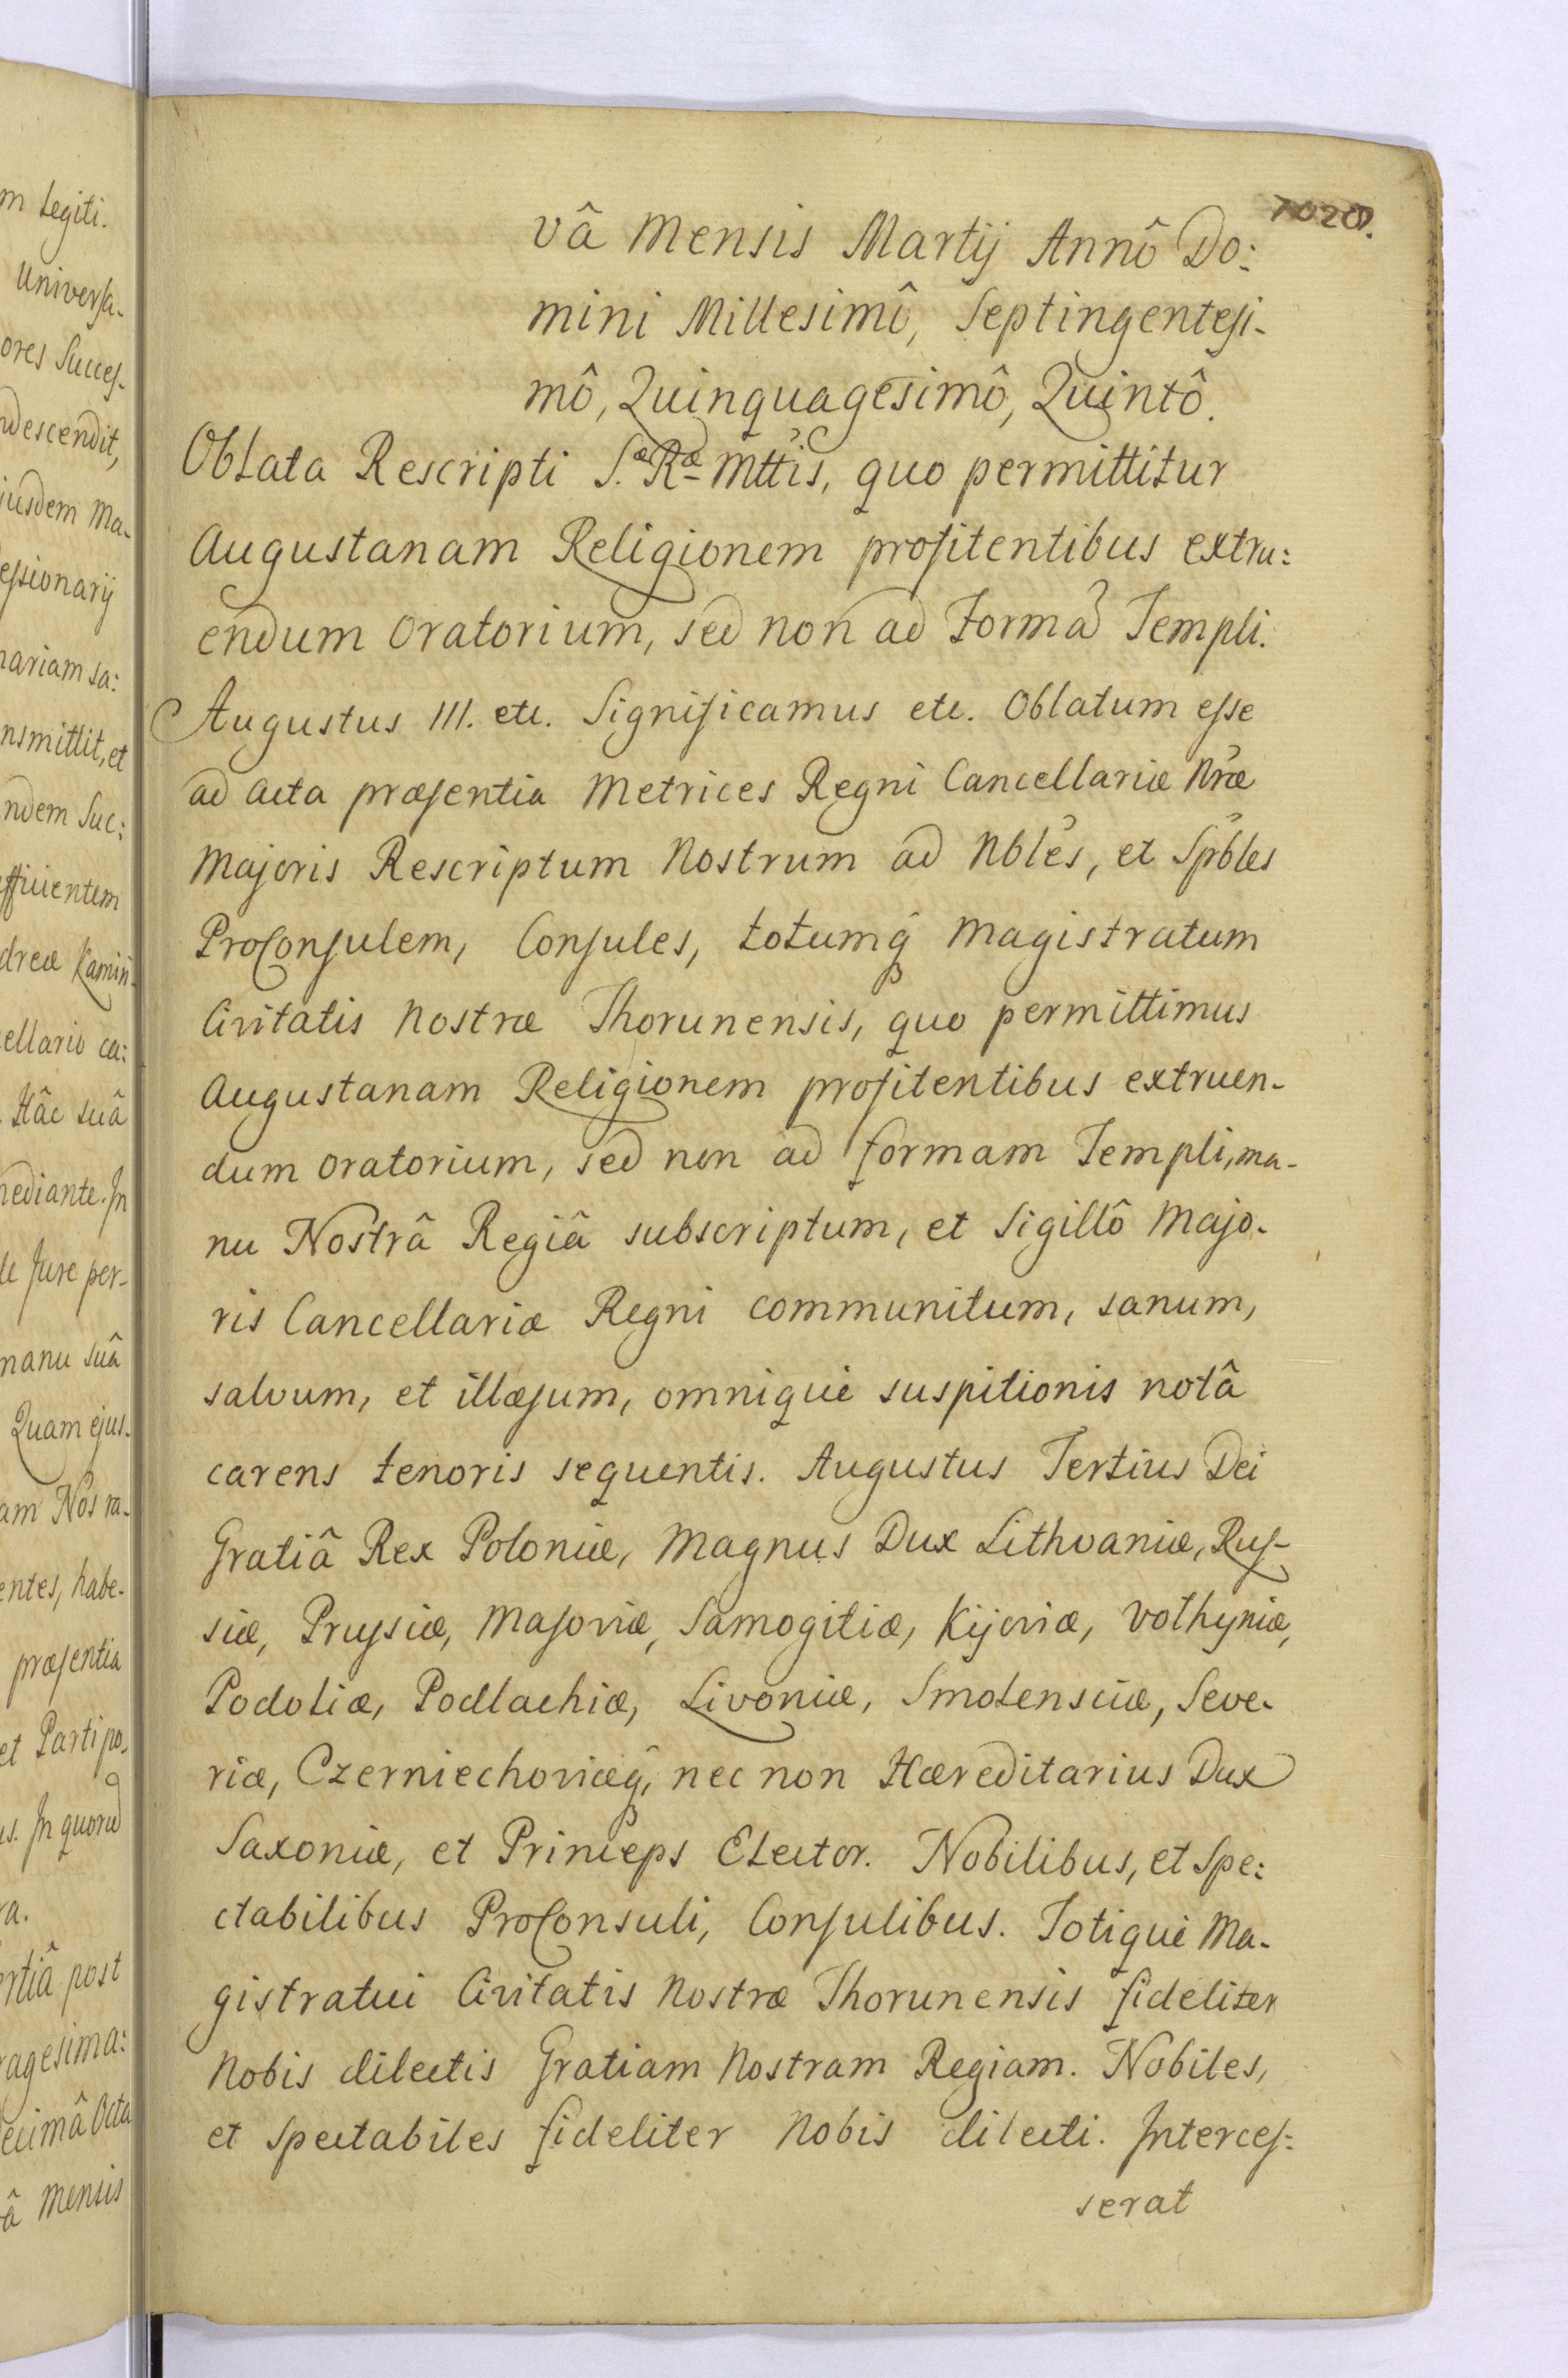 m Legiti.
Universa-
ores Succes-
ndescendit,
jusdem Ma-
essionarij
nariam sa:
nsmittit, et
ndem Suc:
fficientem
dreæ Kamin-
cellario ca:
Hâc suâ
mediante. In
le Jure per-
manu suâ
Quam ejus-
am Nos ra-
entes, habe-
præsentia
et Parti po-
us. In quorũ
ra.
ertiâ post
ragesima:
ecimâ Octa
â Mensis
1020.
vâ Mensis Martij Annô Do:
mini Millesimô, Septingentesi-
mô, Quinquagesimô, Quintô.
Oblata Rescripti S.æ Ræ Mttis, quo permittitur
Augustanam Religionem profitentibus extru:
endum Oratorium, sed non ad Formã Templi.
Augustus III. etc. Significamus etc. Oblatum esse
ad Acta præsentia Metrices Regni Cancellariæ Nræ
Majoris Rescriptum Nostrum ad Nbles, et Spbles
ProConsulem, Consules, totumq̃ Magistratum
Civitatis Nostræ Thorunensis, quo permittimus
Augustanam Religionem profitentibus extruen-
dum Oratorium, sed non ad formam Templi, ma-
nu Nostrâ Regiâ subscriptum, et Sigillô Majo-
ris Cancellariæ Regni communitum, sanum,
salvum, et illæsum, omniquè suspitionis notâ
carens tenoris sequentis. Augustus Tertius Dei
Gratiâ Rex Poloniæ, Magnus Dux Lithvaniæ, Rus-
siæ, Prussiæ, Masoviæ, Samogitiæ, Kijoviæ, Volhyniæ,
Podoliæ, Podlachiæ, Livoniæ, Smolensciæ, Seve-
riæ, Czerniechoviæq̃, nec non Hæreditarius Dux
Saxoniæ, et Princeps Elector. Nobilibus, et Spe:
ctabilibus ProConsuli, Consulibus. Totiquè Ma-
gistratui Civitatis Nostræ Thorunensis fideliter
Nobis dilectis Gratiam Nostram Regiam. Nobiles,
et Spectabiles fideliter Nobis dilecti. Interces:
serat